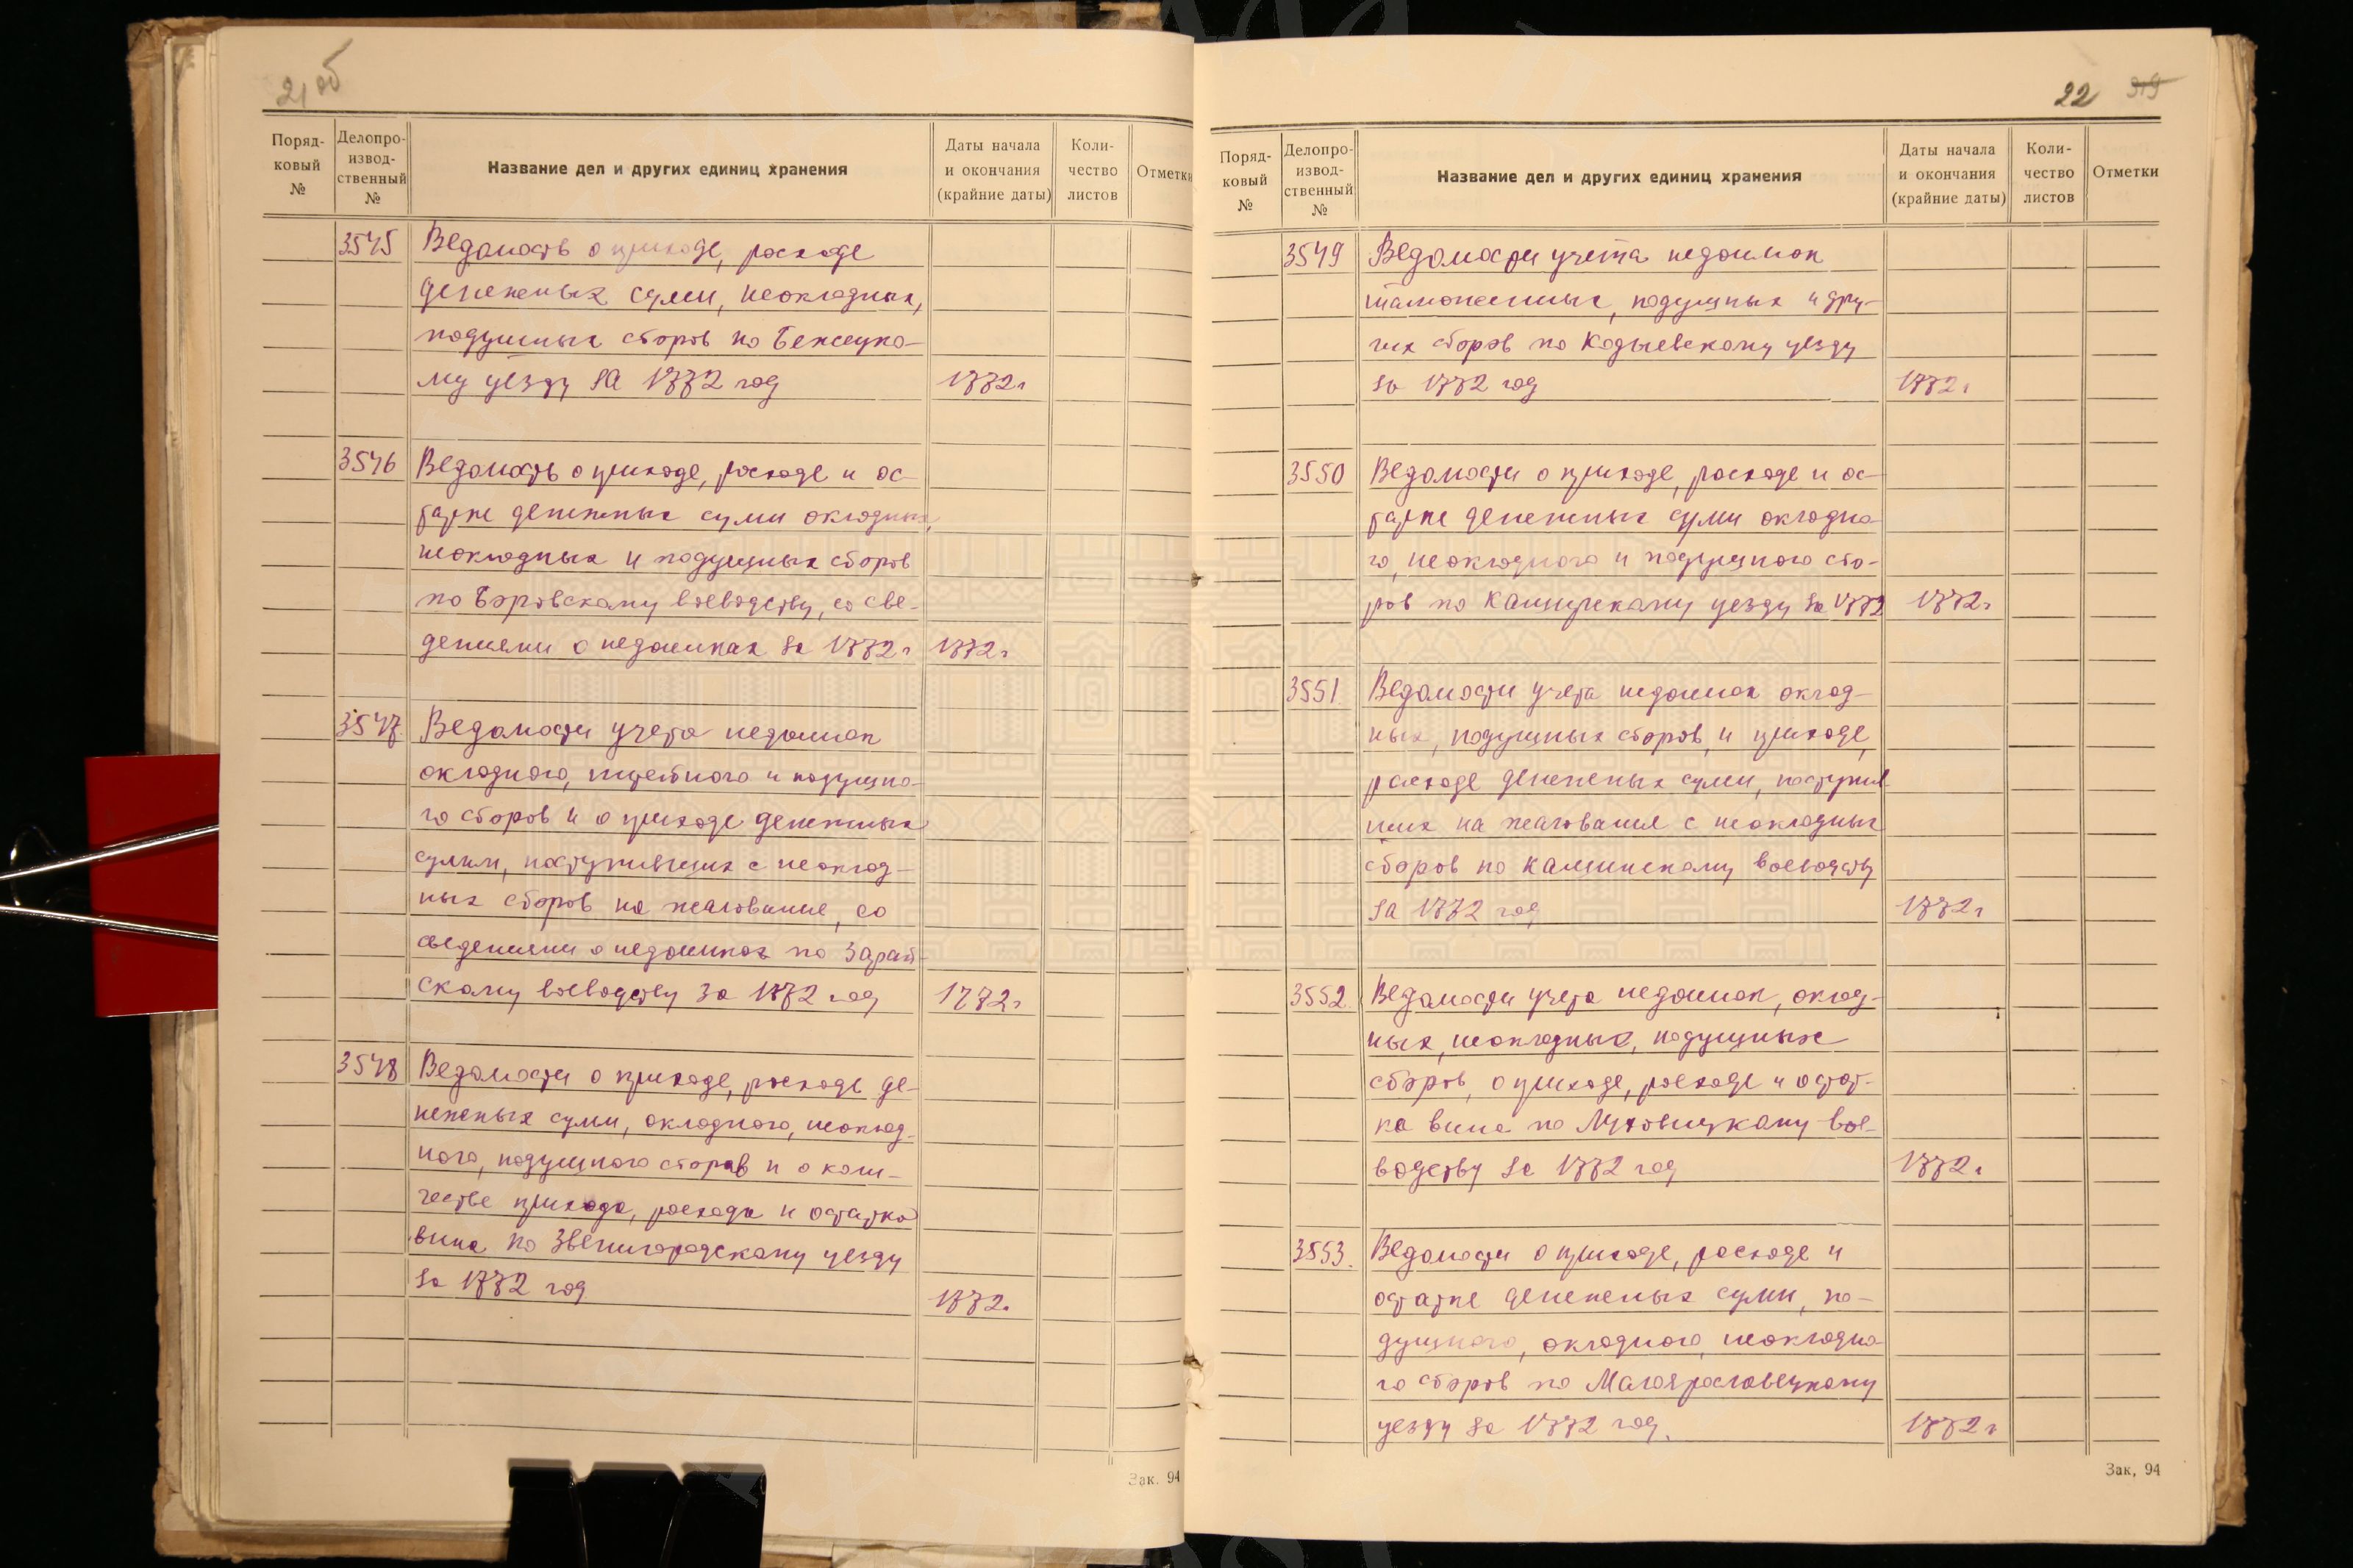 21об
Поряд-
ковый
№
Делопро-
извод-
ственный
№
Название дел и других единиц хранения
Даты начала
и окончания
(крайние даты)
Коли-
чество
листов
Отметки
3545 Ведомость о приходе, расходе
денежных сумм, неокладных,
подушных сборов по Бежецко-
му уезду за 1772 год 1772 г
3546 Ведомость о приходе, расходе и ос-
татке денежных сумм окладных,
неокладных и подушных сборов
по Боровскому воеводству, со све-
дениями о недоимках за 1772 г 1772 г
3547. Ведомости учета недоимок
окладного, и подушно-
го сборов и о приходе денежных
сумм, поступивших с неоклад-
ных сборов на жалование, со
сведениями о недоимках по Зарай-
скому воеводству за 1772 год 1772 г
3548 Ведомости о приходе, расходе де-
нежных сумм, окладного, неоклад-
ного, подушного сборов и о коли-
честве прихода, расхода и остатка
вина по Звенигородскому уезду
за 1772 год 1772.
Зак. 94
22 319
Поряд-
ковый
№
Делопро-
извод-
ственный
№
Название дел и других единиц хранения
Даты начала
и окончания
(крайние даты)
Коли-
чество
листов
Отметки
3549 Ведомости учета недоимок
таможенных, подушных и дру-
гих сборов по Кадыевскому уезду
за 1772 год 1772 г
3550 Ведомости о приходе, расходе и ос-
татке денежных сумм окладно-
го, неокладного и подушного сбо-
ров по Каширскому уезду за 1772 1772 г
3551 Ведомости учета недоимок оклад-
ных, подушных сборов, и приходе,
расходе денежных сумм, поступив
ших на жалования с неокладных
сборов по Кашинскому воеводству
за 1772 год 1772 г
3552 Ведомости учета недоимок, оклад-
ных, неокладных, подушных
сборов, о приходе, расходе и остат-
ка вина по Луховицкому вое-
водству за 1772 год 1772 г
3553. Ведомости о приходе, расходе и
остатке денежных сумм, по-
душного, окладного, неокладно-
го сборов по Малоярославецкому
уезду за 1772 год. 1772 г
Зак, 94